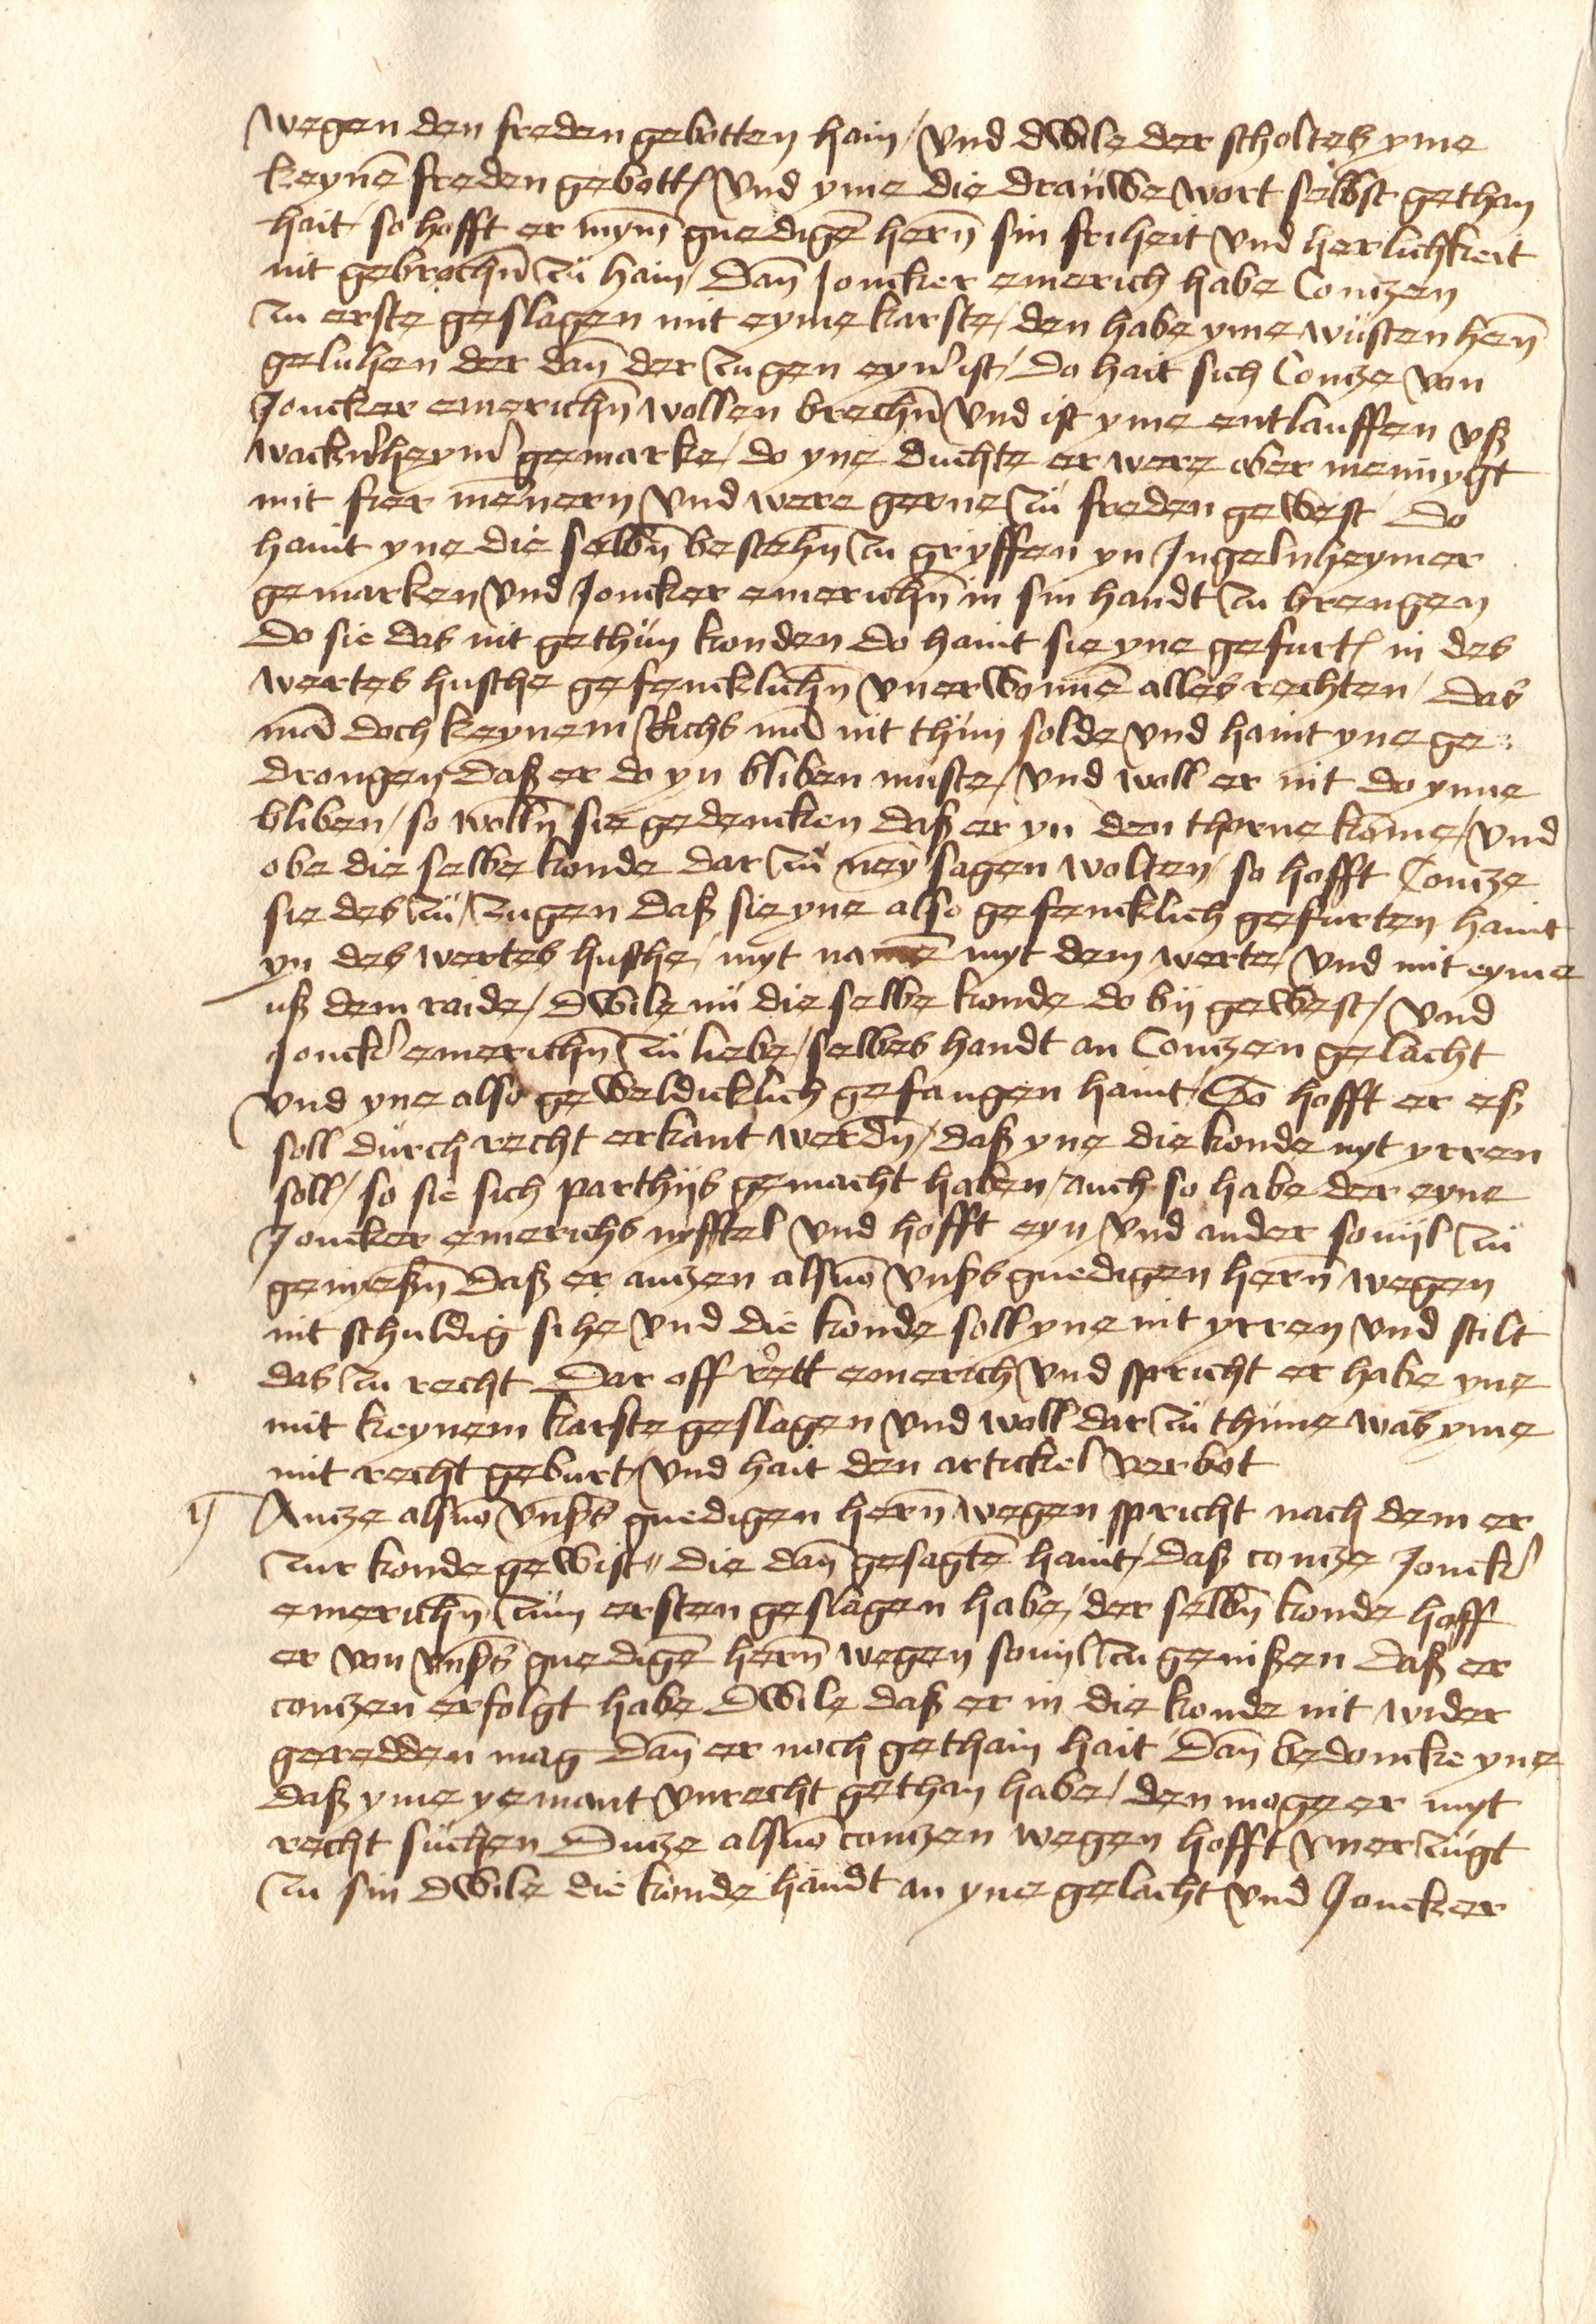 wegen den freden gebotten hain / vnd dwile der scholtes yme
keynē freden gebott / vnd yme die drauwe wort selbst gethan
hait / so hofft er mym̄ gnedigē hern̄ sin friheit vnd herlichkeit
nit gebrochn̄ zu hain / dan̄ Joncker emerich habe Contzen
zu erste geslagen mit eyme karste / den habe yme wusten hen̄
geluhen der dan̄ der zugen eyner ist / do hait sich Contze von
Joncker emerichn̄ wollen brechn̄ vnd ist yme entlauffen vß
wackernheymer gemarke / do yne duchte er were ober mennygt
mit fier mēnern vnd were gerne zu freden gewest do
haint yne die selbn̄ bestehn̄ zu gryffen yn Jngelnheymer
gemarken vnd Joncker emerichn̄ in sin handt zu brengen
do sie das nit gethun konden do haint sie yne gefurt in des
wertes husche gefencklichn̄ vnerwonnē alles rechten / das
mā doch keynem Richs mā nit thun solde vnd haint yne ge-
drongen daß er do yn bliben muste / vnd woll er nit do ynne
bliben / so wolln̄ sie gedencken daß er yn den thorne kōme / vnd
obe die selbe konde dar zu ney sagen wolten / so hofft Contze
sie des zu zugen daß sie yne also gefencklich gefurten haint
yn des wertes husche / myt namē myt dem werte / vnd mit eyme
uß dem raide / dwile nu die selbe konde do bij gewest / vnd
Joncker emerichn̄ zu liebe / selbes handt an Contzen gelacht
vnd yne also geweldicklich gefangen haint / So hofft er eß
soll durch recht erkant werdn̄ / daß yne die konde nyt yrren
soll / so sie sich parthijs gemacht haben / auch so habe der eyne
Joncker emerichs nyfftel vnd hofft eyn vnd ander souijl zu
genyeßn̄ daß er antzen als von vnsers gnedigen hern̄ wegen
nit schuldig sihe vnd die konde soll yne nit yrren vnd stilt
das zu recht Dar off rett emerich vnd spricht er habe yne
mit keynem karste geslagen vnd woll dar zu thune was yme
mit recht geburt / vnd hait den artickel verbot
ij Antze als von vnsers gnedigen hern̄ wegen spricht nach dem er
zur konde gewist / die dan̄ gesagtē haint / daß contze Joncker
emerichn̄ zum ersten geslagen habe / der selbn̄ konde hoff
er von vnsers gnedigē hern̄ wegen souil zu genißen daß er
contzen erfolgt habe dwile daß er in die konde nit wider
geredden mag dan̄ er noch gethain hait dan̄ bedoncke yne
daß yme yemant vnrecht gethan habe / den moge er myt
recht suchen Antze als von contzen wegen hofft vnerzugt
zu sin dwile die konde handt an yne gelacht vnd Joncker